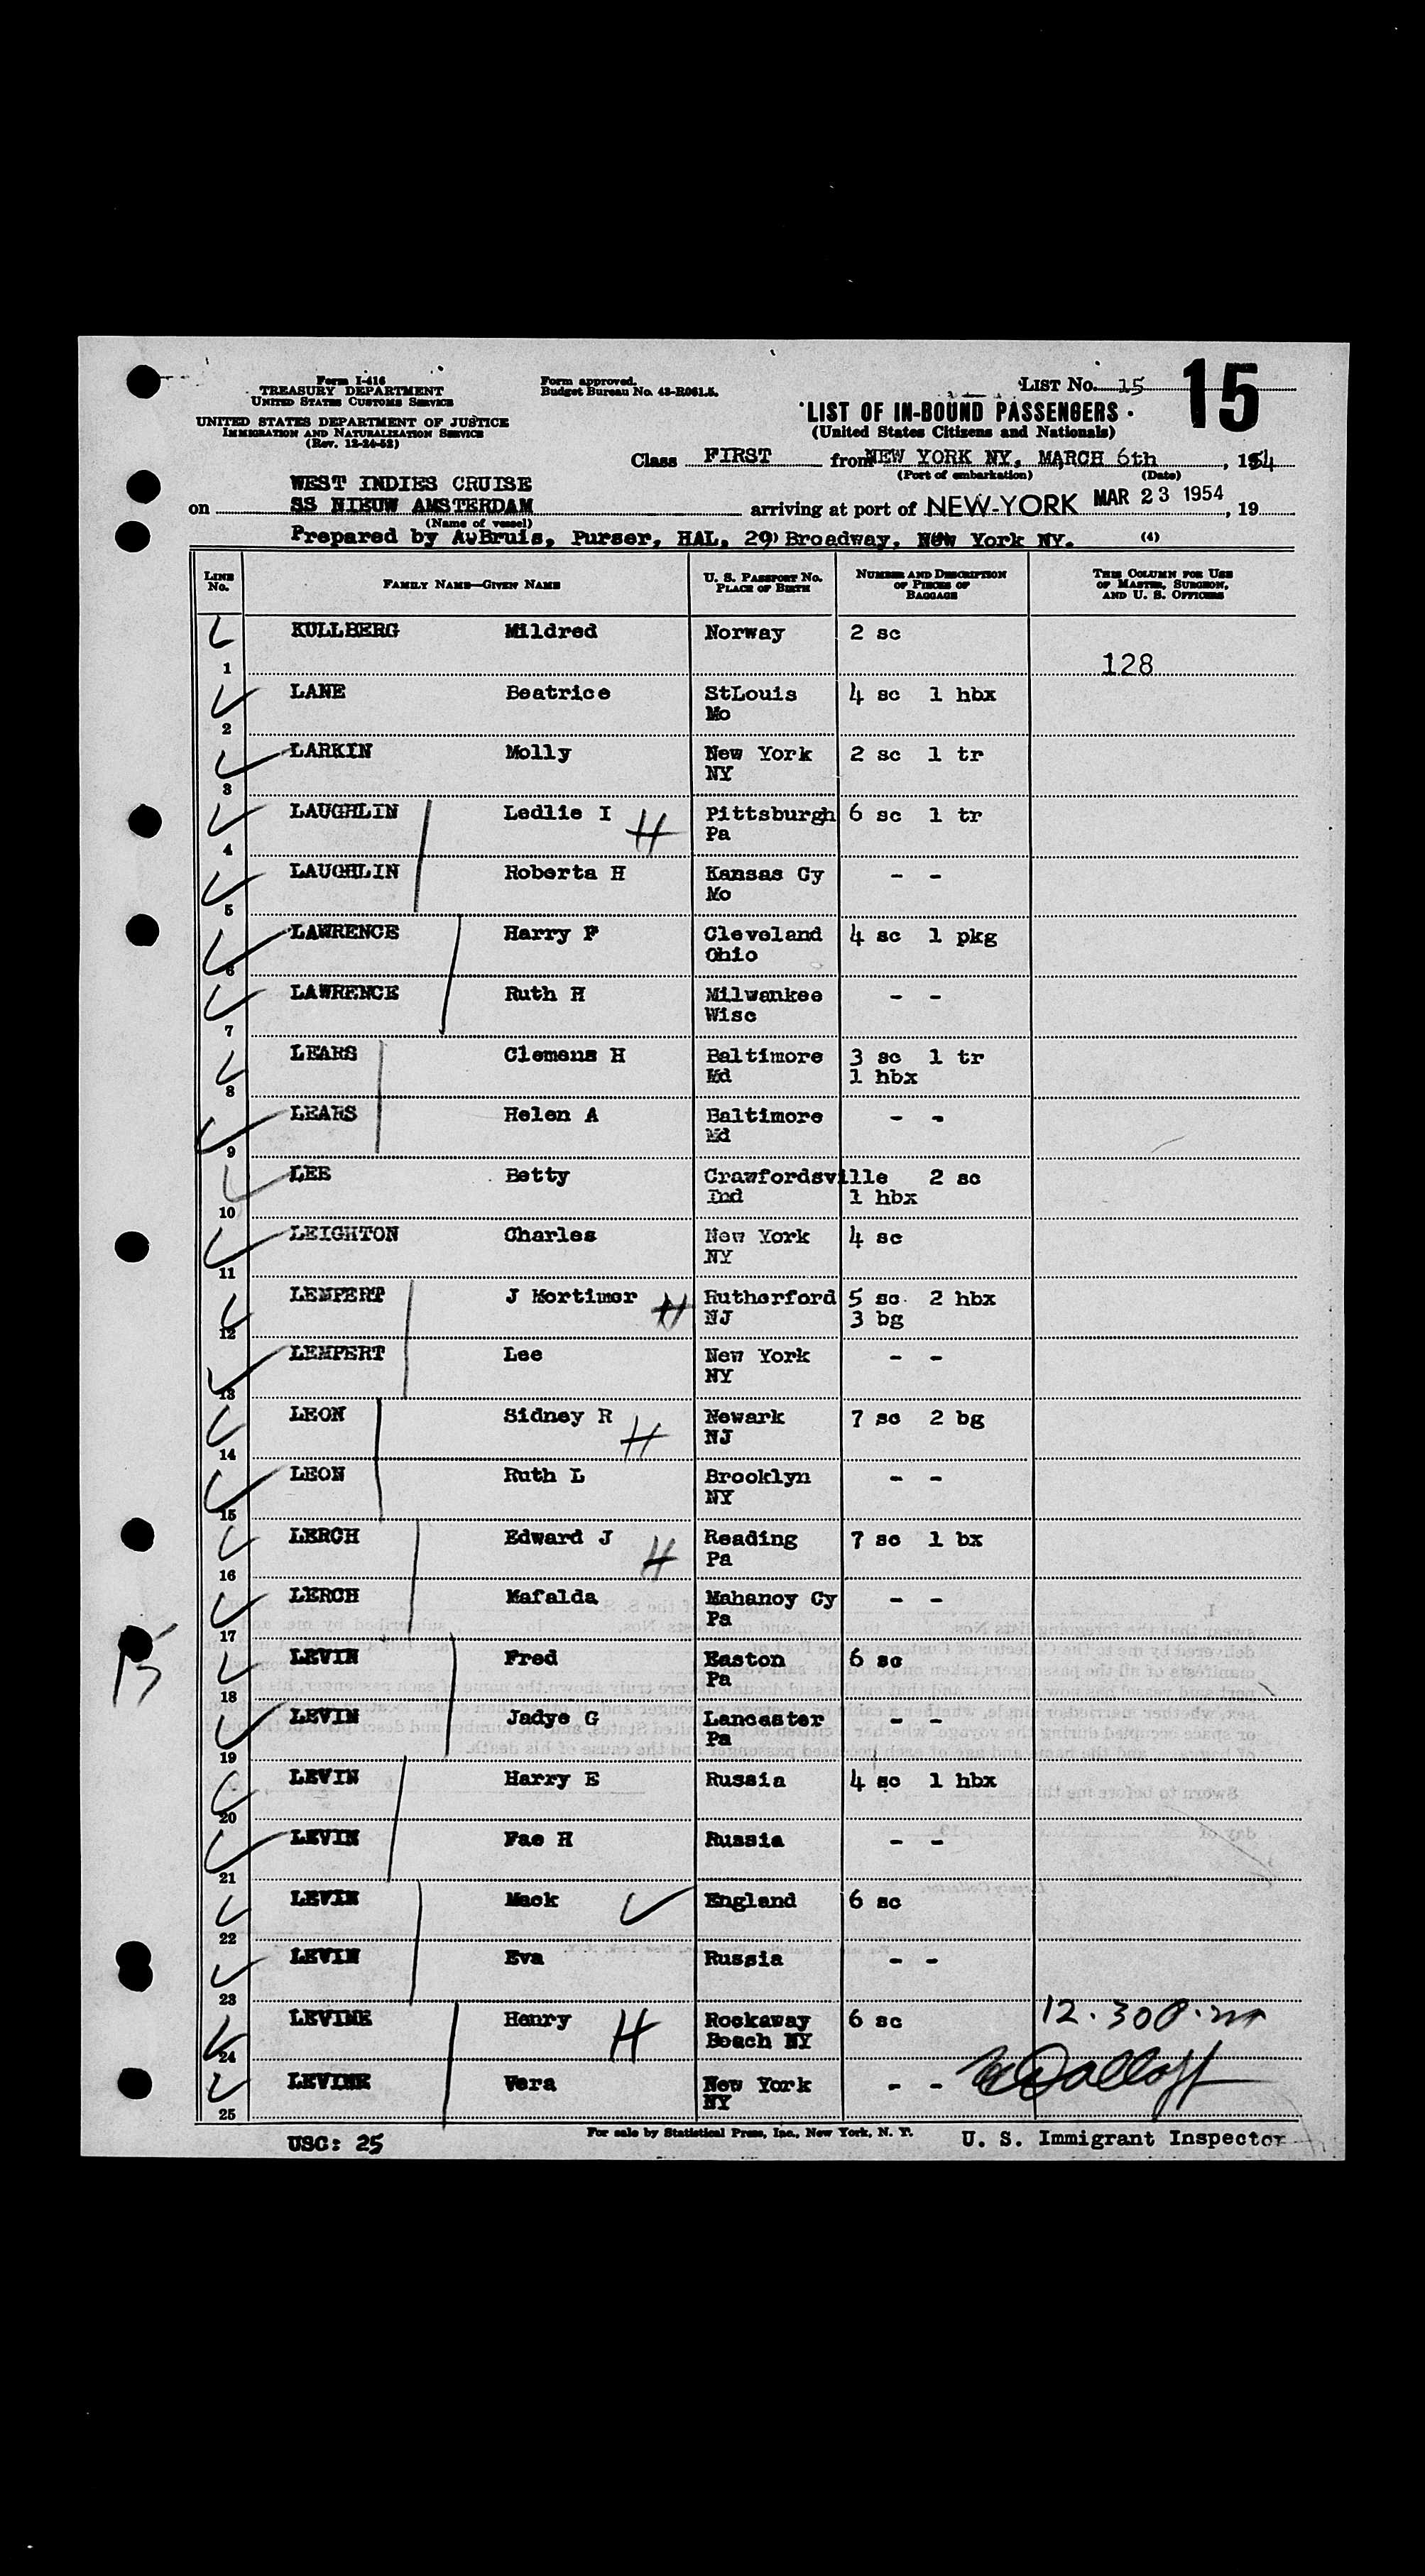 Form I-416
TREASURY DEPARTMENT
UNITED STATES CUSTOMS SERVICE
UNITED STATES DEPARTMENT OF JUSTICE
IMMIGRATION AND NATURALIZATION SERVICE
(Rev. 12-24-52)
Form approved.
Budget Bureau No. 43-R061.5.
LIST No. 15 15
LIST OF IN-BOUND PASSENGERS
(United States Citizens and Nationals)
Class FIRST from NEW YORK NY, MARCH 6th, 1954
(Port of embarkation) (Date)
WEST INDIES CRUISE
on SS NIEUW AMSTERDAM arriving at port of NEW-YORK MAR 23 1954, 19
(Name of vessel)
Prepared by AvBruis, Purser, HAL, 29 Broadway, New York NY. (4)
LINE No. FAMILY NAME—GIVEN NAME U. S. PASSPORT No. PLACE OF BIRTH NUMBER AND DESCRIPTION OF PIECES OF BAGGAGE THIS COLUMN FOR USE OF MASTER, SURGEON, AND U. S. OFFICERS
1 KULLBERG Mildred Norway 2 sc 128
2 LANE Beatrice StLouis Mo 4 sc 1 hbx
3 LARKIN Molly New York NY 2 sc 1 tr
4 LAUGHLIN Ledlie I H Pittsburgh Pa 6 sc 1 tr
5 LAUGHLIN Roberta H Kansas Cy Mo - -
6 LAWRENCE Harry F Cleveland Ohio 4 sc 1 pkg
7 LAWRENCE Ruth H Milwankee Wisc - -
8 LEARS Clemens H Baltimore Md 3 sc 1 tr 1 hbx
9 LEARS Helen A Baltimore Md - -
10 LEE Betty Crawfordsville Ind 2 sc 1 hbx
11 LEIGHTON Charles New York NY 4 sc
12 LEMPERT J Mortimer H Rutherford NJ 5 sc 2 hbx 3 bg
13 LEMPERT Lee New York NY - -
14 LEON Sidney R H Newark NJ 7 sc 2 bg
15 LEON Ruth L Brooklyn NY - -
16 LERCH Edward J H Reading Pa 7 sc 1 bx
17 LERCH Mafalda Mahanoy Cy Pa - -
15
18 LEVIN Fred Easton Pa 6 sc
19 LEVIN Jadye G Lancaster Pa - -
20 LEVIN Harry E Russia 4 sc 1 hbx
21 LEVIN Fae H Russia - -
22 LEVIN Mack England 6 sc
23 LEVIN Eva Russia - -
24 LEVINE Henry H Rockaway Beach NY 6 sc 12.30 P.m
25 LEVINE Vera New York NY - -
USC: 25
For sale by Statistical Press, Inc., New York, N. Y.
U. S. Immigrant Inspector